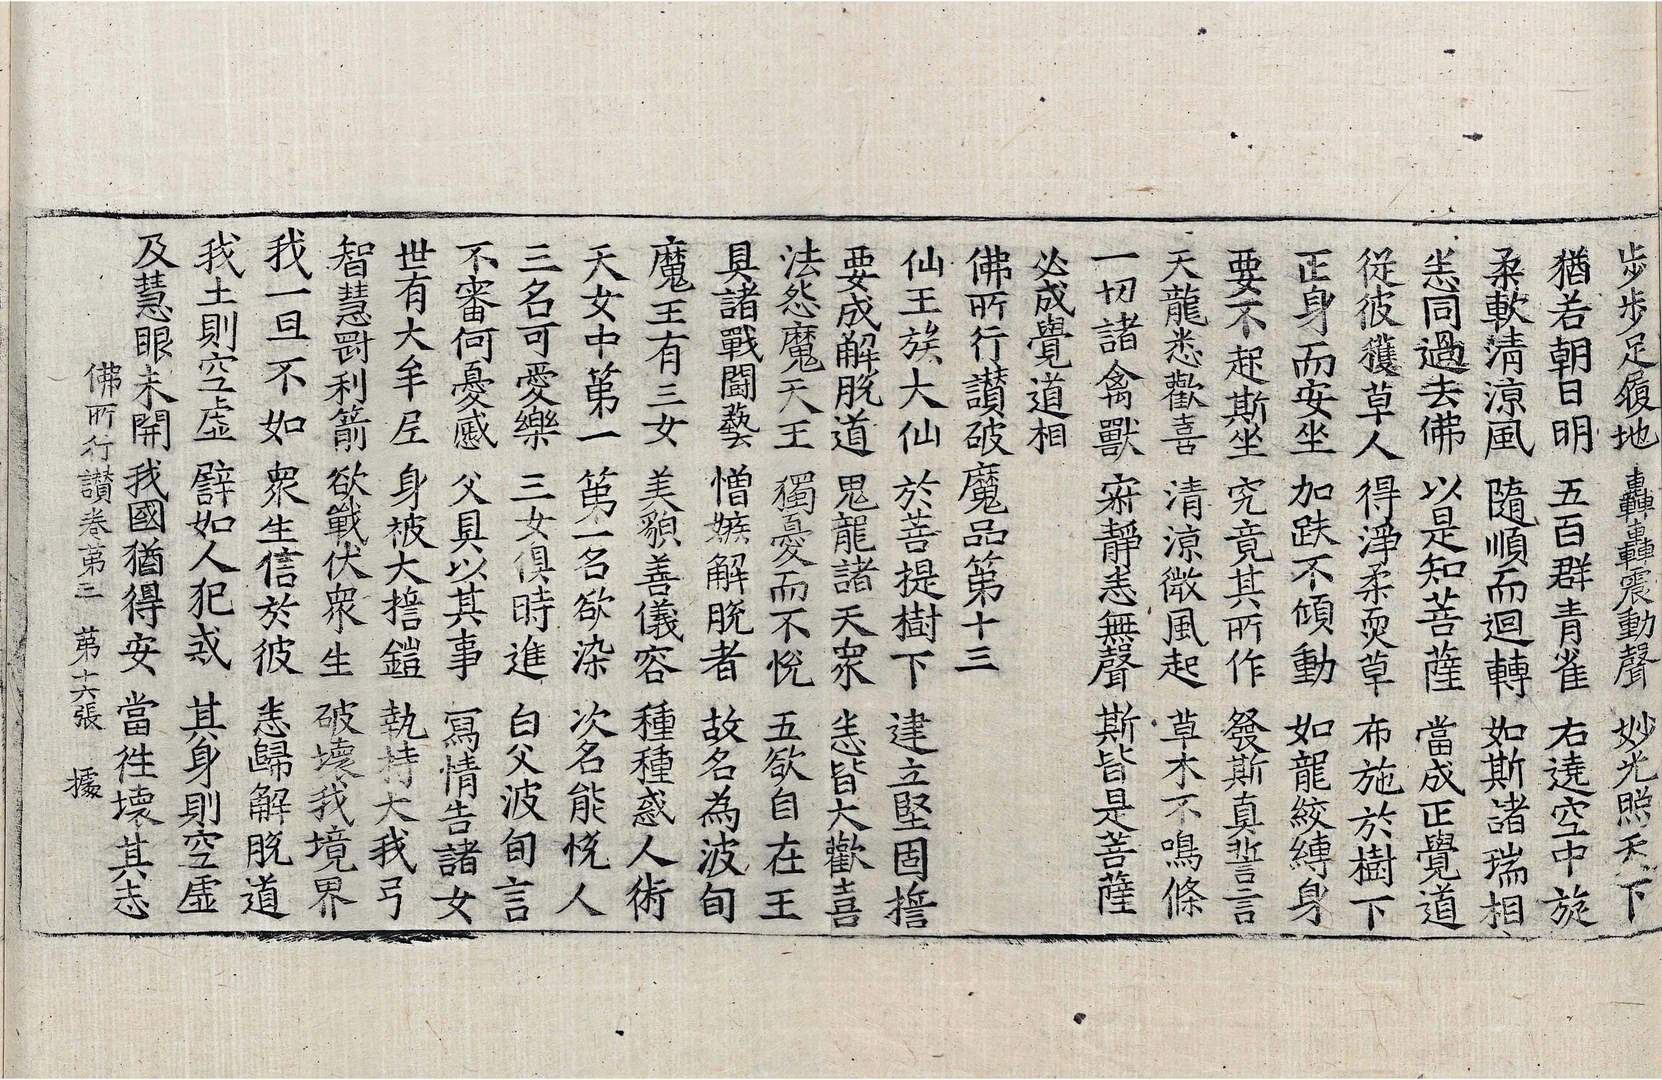 步步足履地 轟轟震動聲 妙光照天下
猶若朝日明 五百群青雀 右遶空中旋
柔軟清涼風 隨順而迴轉 如斯諸瑞相
悉同過去佛 以是知菩薩 當成正覺道
從彼獲草人 得淨柔耎草 布施於樹下
正身而安坐 加趺不傾動 如龍絞縛身
要不起斯坐 究竟其所作 發斯真誓言
天龍悉歡喜 清涼微風起 草木不鳴條
一切諸禽獸 寂靜悉無聲 斯皆是菩薩
必成覺道相
佛所行讃破魔品第十三
仙王族大仙 於菩提樹下 建立堅固誓
要成解脫道 鬼龍諸天衆 悉皆大歡喜
法怨魔天王 獨憂而不悅 五欲自在王
具諸戰鬪藝 憎嫉解脫者 故名為波旬
魔王有三女 美貌善儀容 種種惑人術
天女中第一 第一名欲染 次名能悅人
三名可愛樂 三女俱時進 白父波旬言
不審何憂慼 父具以其事 寫情告諸女
世有大牟尼 身被大誓鎧 執持大我弓
智慧罸利箭 欲戰伏衆生 破壞我境界
我一旦不如 衆生信於彼 悉歸解脫道
我土則空虛 譬如人犯戒 其身則空虛
及慧眼未開 我國猶得安 當往壞其志
佛所行讃卷第三 第十六張 據